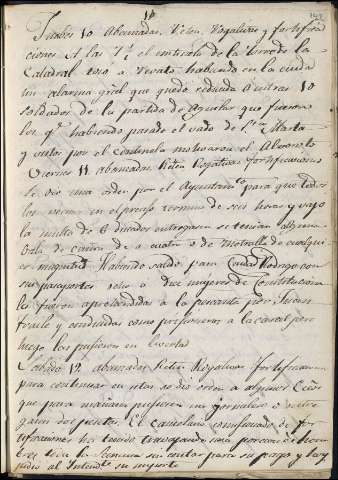 10
Jueves 10 Abanzadas, Reten, Rogativas y fortifica
ciones. A las 7 el centinela de la torre de la
Catedral toco a revato habiendo en la ciudad
un alarma gral que quedo reducida a entrar 10
soldados de la partida de Aguilar que fueron
los q.e habiendo pasado el vado de S.ta Marta
y vistos por el centinela motivaron el Alboroto
Viernes 11 abanzadas Reten Rogativas fortificaciones
se dio una orden por el Ayuntam.to para que todos
los vecinos en el preciso termino de seis horas y vajo
la multa de 6 ducados entregaran si tenian alguna
bala de cañon de a cuatro o de metralla de cualqui
er magnitud. Habiendo salido para Ciudad Rodrigo con
sus pasaportes seis a diez mujeres de
las fueron aprehendidas a la por Juan
Fraile y conducidas como prisioneras a la carcel pero
luego las pusieron en livertad
Sabado 12 abanzadas Reten Rogativas fortificacion.s
para continuar en estas se dio orden a algunos
que para mañana pusiesen un jornalero o entre
gasen dos pesetas. El comisionado de for
tificaciones ha tenido travajando una porcion de hom
bres toda la semana sin contar para su pago y hoy
pidio al Intend.te su importe